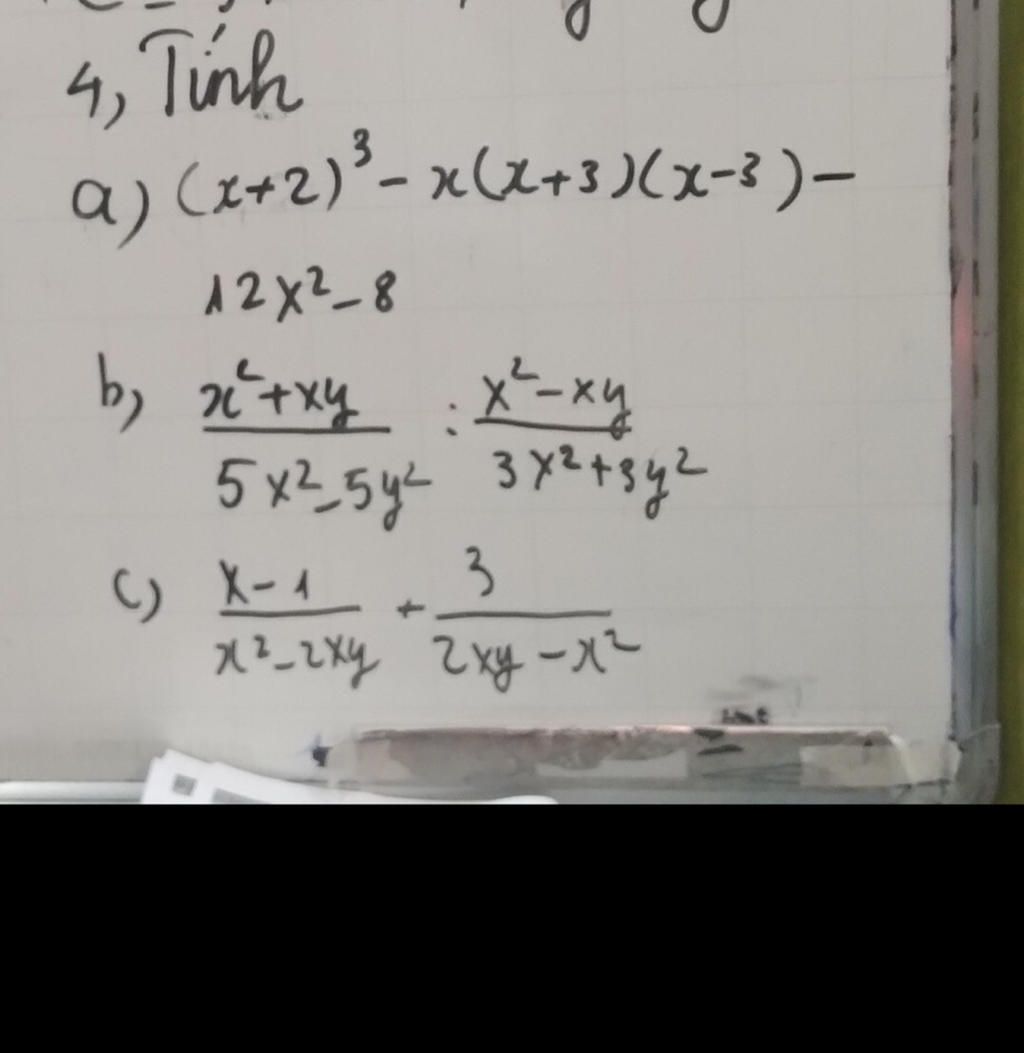 4, Tính
a) (x+2)³ - x(x+3)(x-3) -
12x² - 8
b) x² + xy / 5x² - 5y² : x² - xy / 3x² + 3y²
c) x - 1 / x² - 2xy + 3 / 2xy - x²